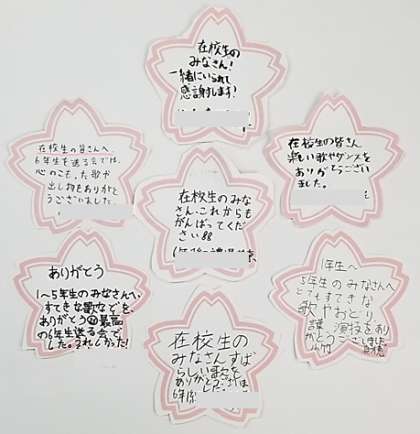 在校生の
みなさん!
一緒にいられて
感謝します!
在校生の皆さんへ
6年生を送る会では、
心のこもった歌や
出し物をありがと
うございました。
在校生のみな
さん.これからも
がんばってくだ
さい
在校生の皆さん
楽しい歌やダンスを
ありがとうござい
ました。
ありがとう
1〜5年生のみなさんへ、
すてきな歌などを、
ありがとう 最高
の6年生送る会で
した。うれしかった!
在校生の
みなさんすば
らしい歌を
ありがとうございま
した。
6年
1年生へ
5年生のみなさんへ
とてもすてきな
歌やおどり、
演技をあり
がとうござい